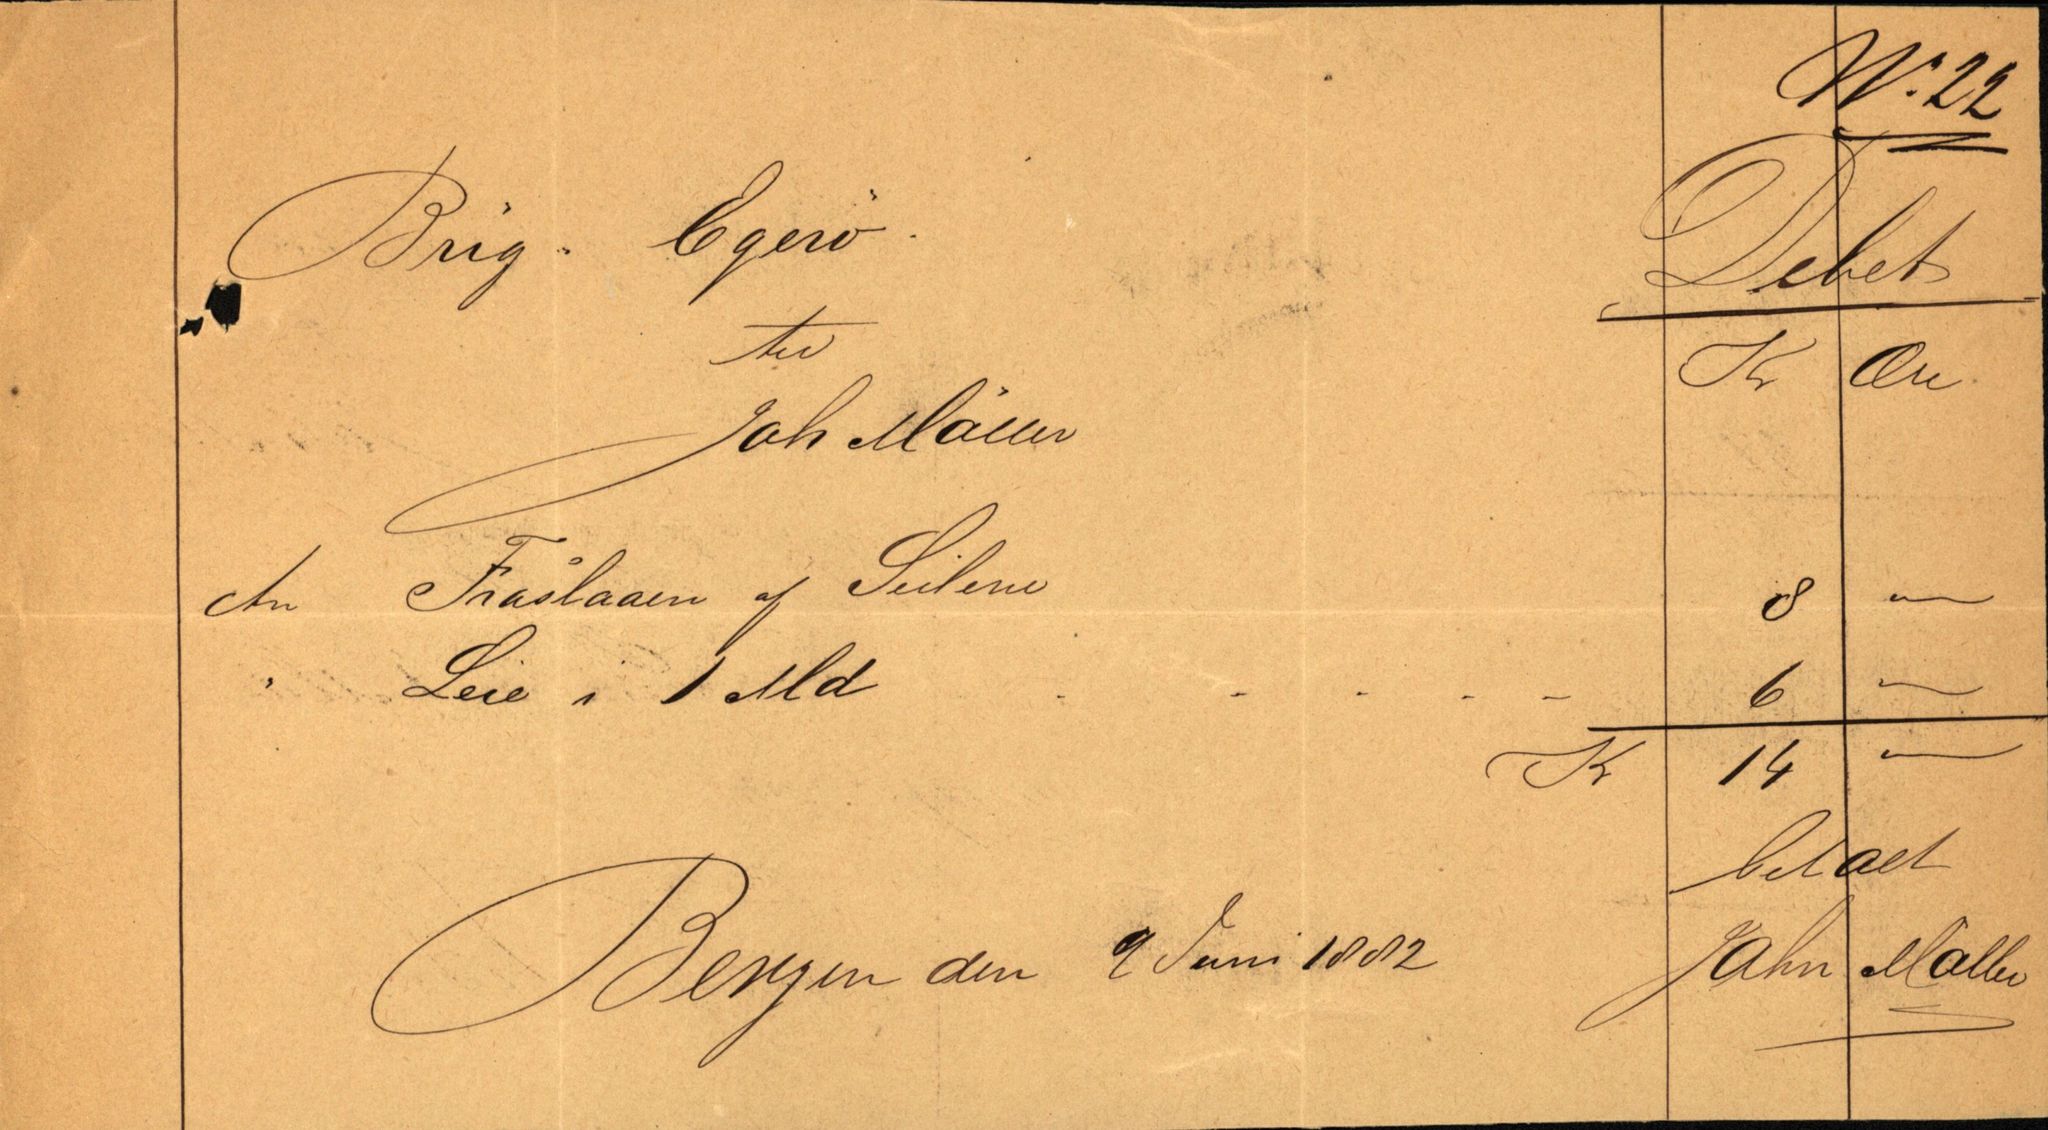 No. 22
Brig. Egerö. Debet
til
Kr Øre
Joh Möller
An Fraslaaen af Seilene 8 —
" Leie i 1 Md - - - - - 6 —
Kr 14 —
betalt
Bergen den 9 Juni 1882 John Möller